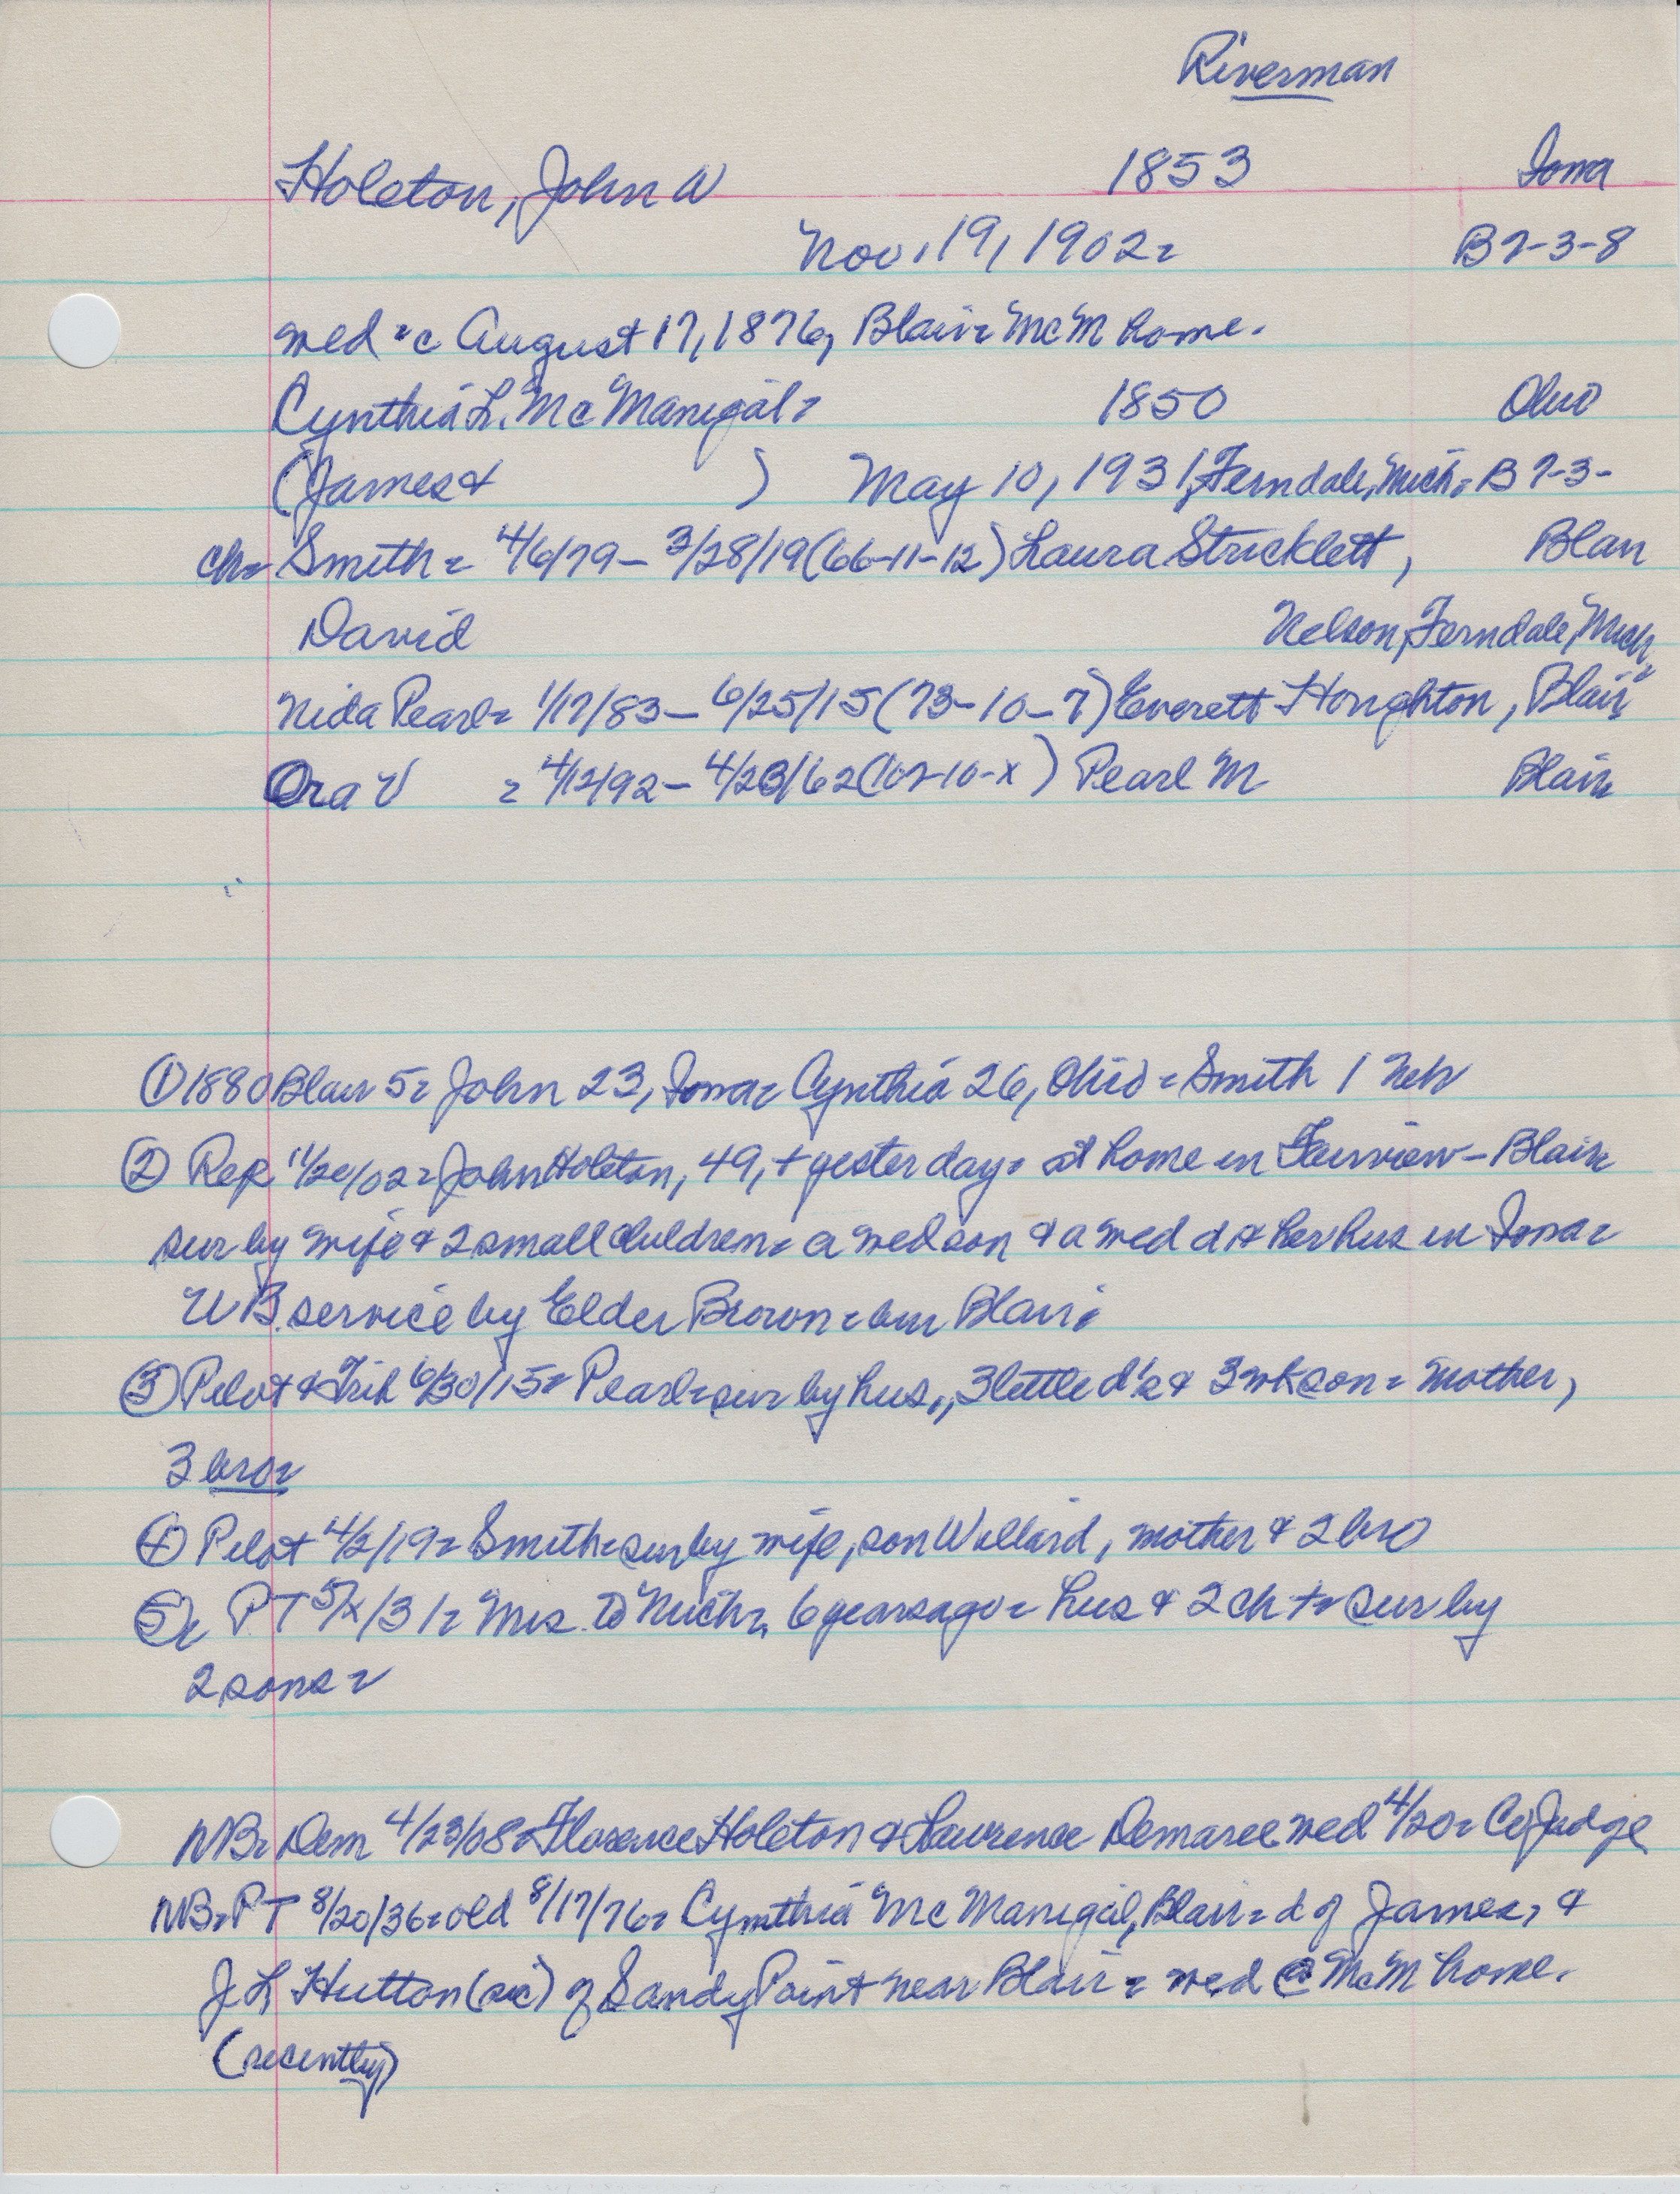 Riverman
Holeton, John W 1853 Iowa
Nov. 19, 1902= B 7-3-8
wed =c August 17, 1876, Blair= McM home.
Cynthia L. McManigal= 1850 Ohio
(James & ) May 10, 1931, Ferndale, Mich= B 7-3-
ch= Smith = 4/6/79 - 3/28/19 (66-11-12) Laura Stricklett, Blair
David Nelson, Ferndale, Mich
Nida Pearl= 1/17/83 - 6/25/15 (73-10-7) Everett Houghton, Blair
Ora V = 4/12/92 - 4/23/62 (107-10-x) Pearl M Blair
① 1880 Blair 5= John 23, Iowa= Cynthia 26, Ohio = Smith 1 Neb
② Rep 11/20/02= John Holeton, 49, + yesterday= at home in Fairview - Blair
sur by wife & 2 small children= a wed son & a wed d & her hus in Iowa=
UB. service by Elder Brown= bur Blair=
③ Pilot & Trib 6/30/15= Pearl= sur by hus,, 3 little d's & 3 wk son= mother,
3 bro=
④ Pilot 4/2/19= Smith= sur by wife, son Willard, mother & 2 bro
⑤= PT 5/x/31= Mrs. to Mich=, 6 years ago= hus & 2 ch += sur by
2 sons=
NB= Dem 4/23/08= Florence Holeton & Lawrence Demaree wed 4/20= Co Judge
NB= PT 8/20/36= old 8/17/76= Cynthia McManigal, Blair= d of James, &
J L Hutton (sic) of Sandy Point near Blair = wed @ McM home.
(recently)